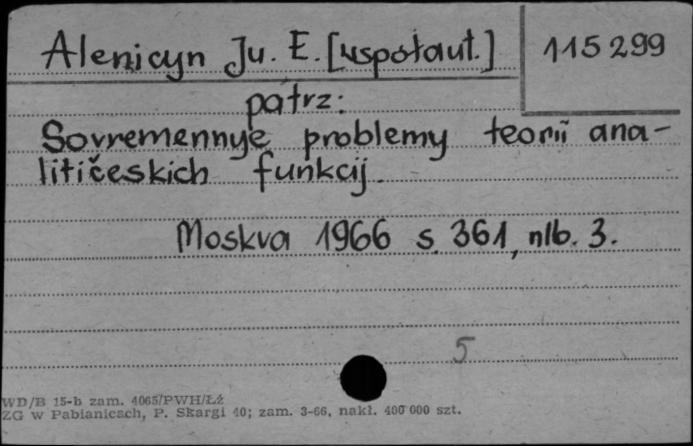 Alenicyn Ju. E. [współaut.] 115299
patrz:
Sovremennye problemy teorii ana-
litičeskich funkcij.
Moskva 1966 s. 361, nlb. 3.
5
WD/B 15-b zam. 4065/PWH/Łź
ZG w Pabianicach, P. Skargi 40; zam. 3-66, nakł. 400 000 szt.